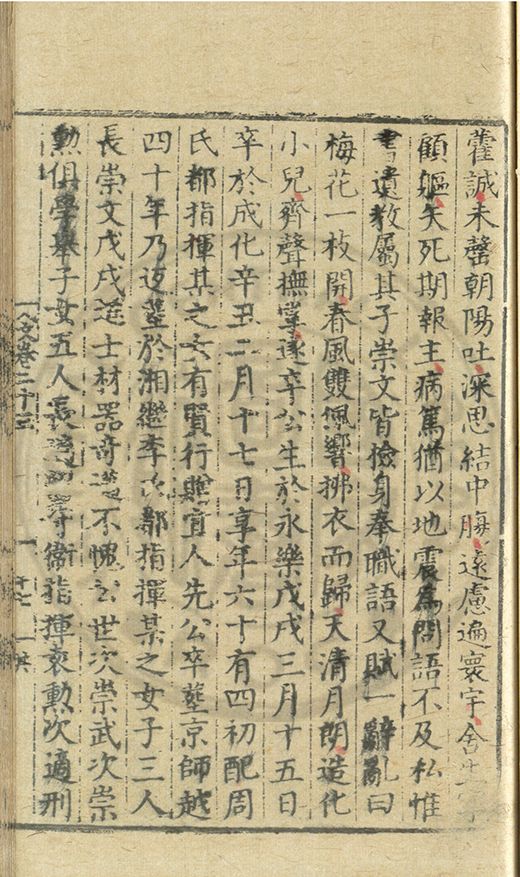 藿誠未罄朝陽吐深思結中腸遠慮遍寰宇舍
顧軀矢死期報主病篤猶以地震為問語不及私惟
書遺教屬其子崇文皆檢身奉職語又賦一辭亂曰
梅花一枝開春風雙佩響拂衣而歸天清月朗造化
小兒齊聲撫掌遂卒公生於永樂戊戌三月十五日
卒於成化辛丑二月十七日享年六十有四初配周
氏都指揮某之女有賢行贈宜人先公卒塟京師越
四十年乃返塟於湘繼李氏都指揮某之女子三人
長崇文戊戌進士材器奇 不愧公世次崇武次崇
勲俱學舉子女五人長適 衛指揮袁勲次適刑
文卷二十三
十七